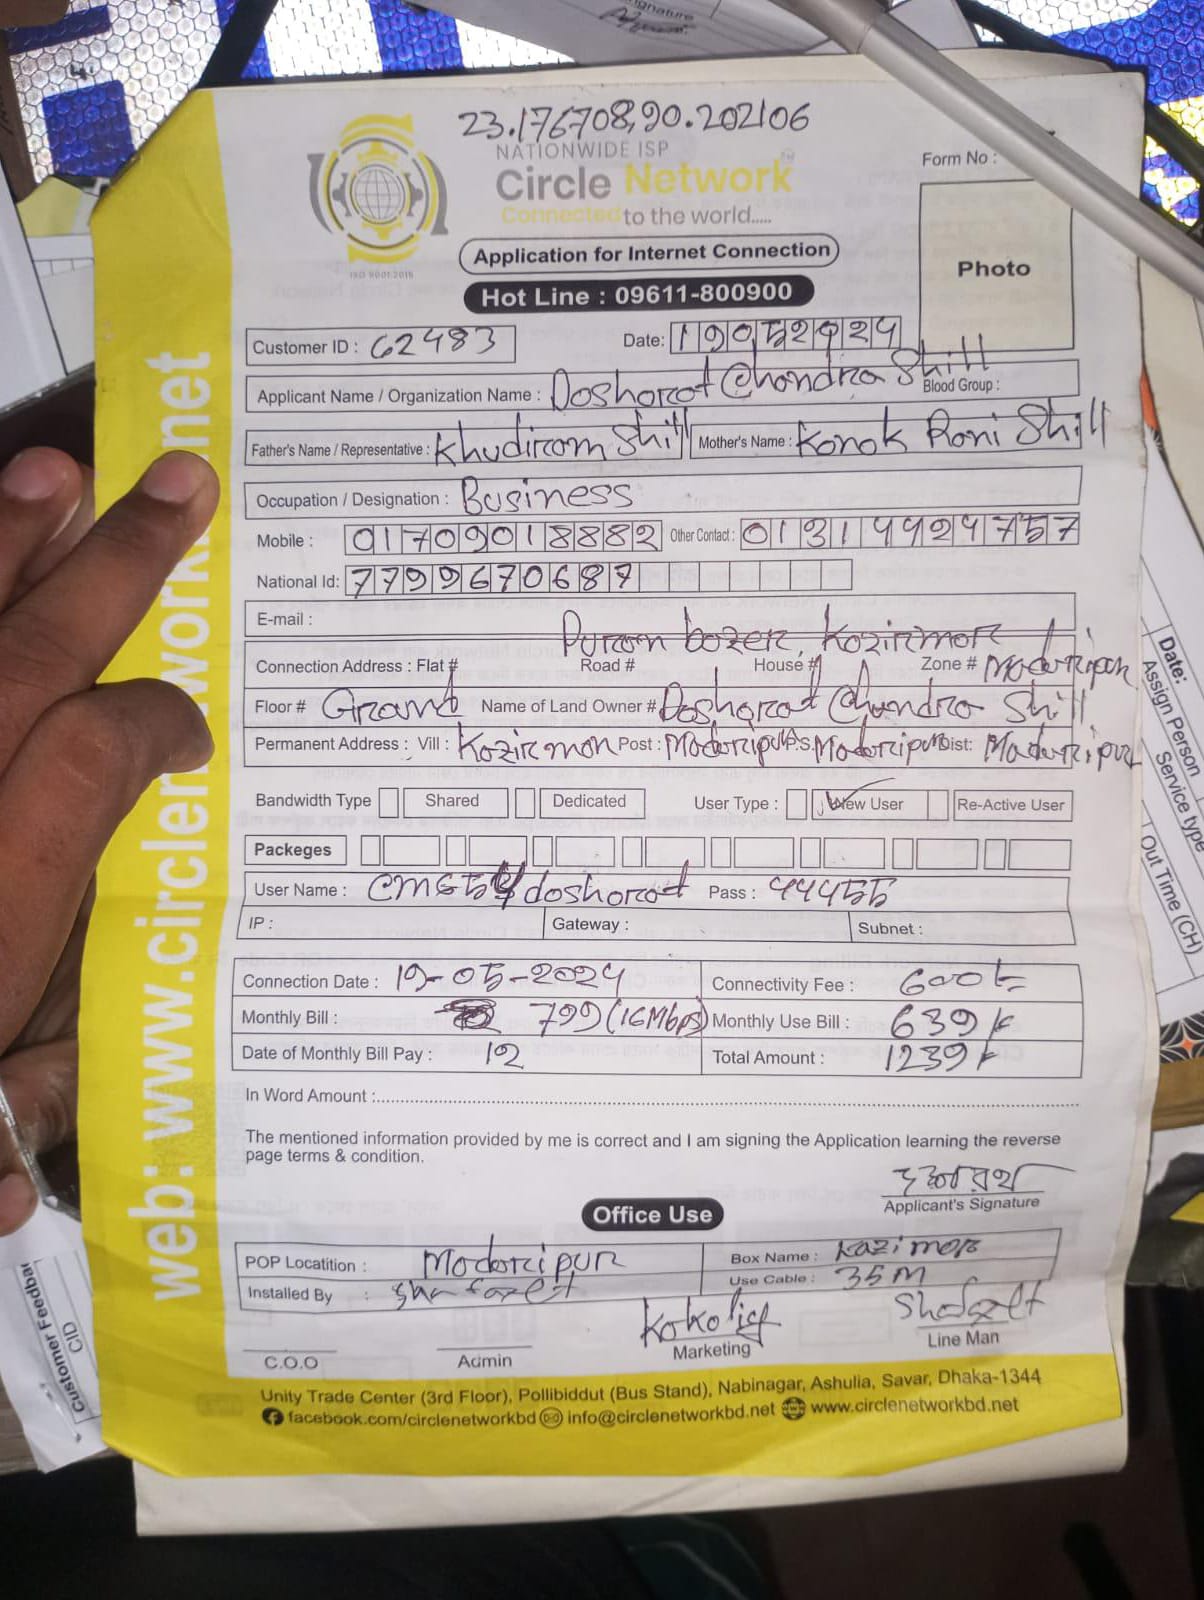 23.176708,90.202106
NATIONWIDE ISP
Circle Network
Connected to the world.....
ISO 9001:2015
Form No :
Photo
Application for Internet Connection
Hot Line : 09611-800900
Customer ID : 62483 Date: 19052024
Applicant Name / Organization Name : Doshorot Chondra Shill Blood Group :
Father's Name / Representative : Khudirom Shill Mother's Name : Konok Rani Shill
Occupation / Designation : Business
Mobile : 01709018882 Other Contact : 01314424757
National Id: 7799670687
E-mail :
Puran bozer, Kozirmor
Connection Address : Flat # Road # House # Zone # Madaripur
Floor # Grand Name of Land Owner # Doshorot Chandra Shill
Permanent Address : Vill : Kozirmor Post : Madaripur P.s: Madaripur Dist: Madaripur
Bandwidth Type Shared Dedicated User Type : New User Re-Active User
Packeges
User Name : doshorot Pass : 44455
IP : Gateway : Subnet :
Connection Date : 19-05-2024 Connectivity Fee : 600
Monthly Bill : 799 (16Mbps) Monthly Use Bill : 639
Date of Monthly Bill Pay : 12 Total Amount : 1239
In Word Amount :
The mentioned information provided by me is correct and I am signing the Application learning the reverse
page terms & condition.
Applicant's Signature
Office Use
POP Locatition : Madaripur Box Name : Kazimor
Installed By : Use Cable : 35M
C.O.O Admin Marketing Line Man
Unity Trade Center (3rd Floor), Pollibiddut (Bus Stand), Nabinagar, Ashulia, Savar, Dhaka-1344
facebook.com/circlenetworkbd info@circlenetworkbd.net www.circlenetworkbd.net
Date:
Assign Person
Service type
Out Time (CH)
Customer Feedbar
CID